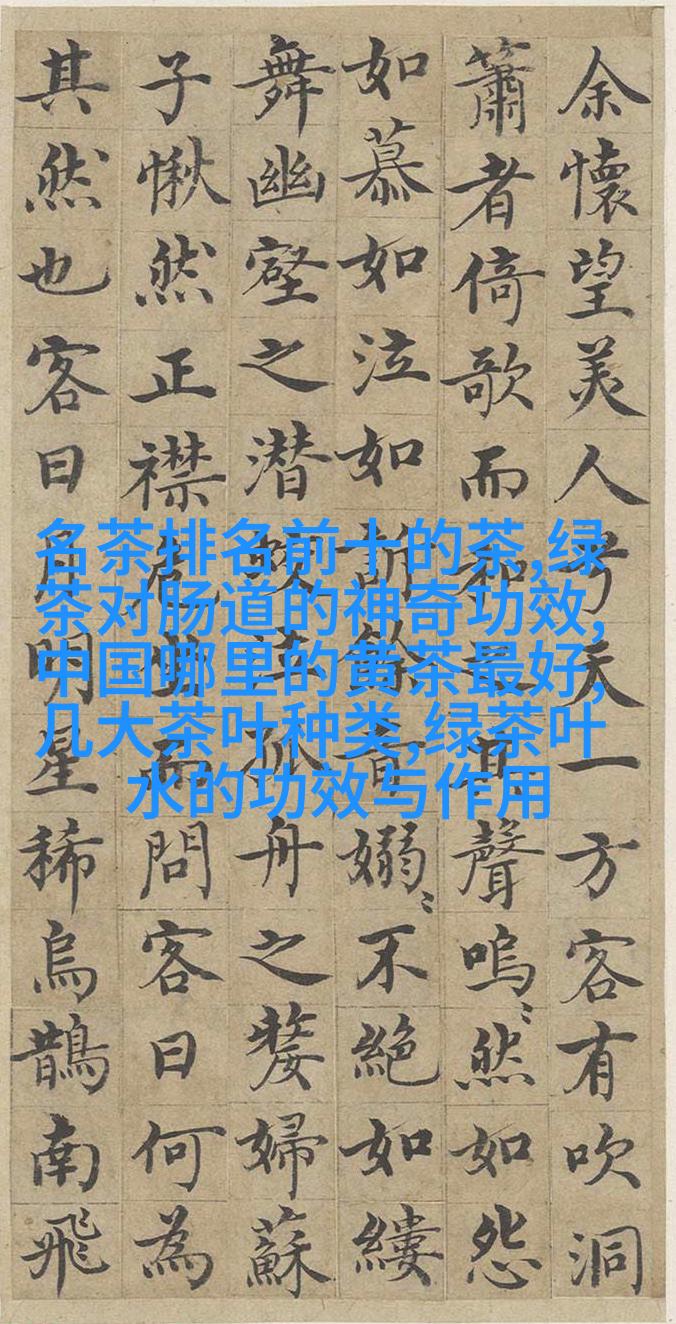 余懷望美人兮天一方客有吹洞
簫者倚歌而和之其聲嗚〻然如怨
如慕如泣如訴餘音嫋〻不絕如縷
舞幽壑之潛蛟泣孤舟之嫠婦蘇
子愀然正襟危坐而問客曰何為
其然也客曰月明星稀烏鵲南飛
名茶排名前十的茶,绿
茶对肠道的神奇功效,
中国哪里的黄茶最好,
几大茶叶种类,绿茶叶
水的功效与作用